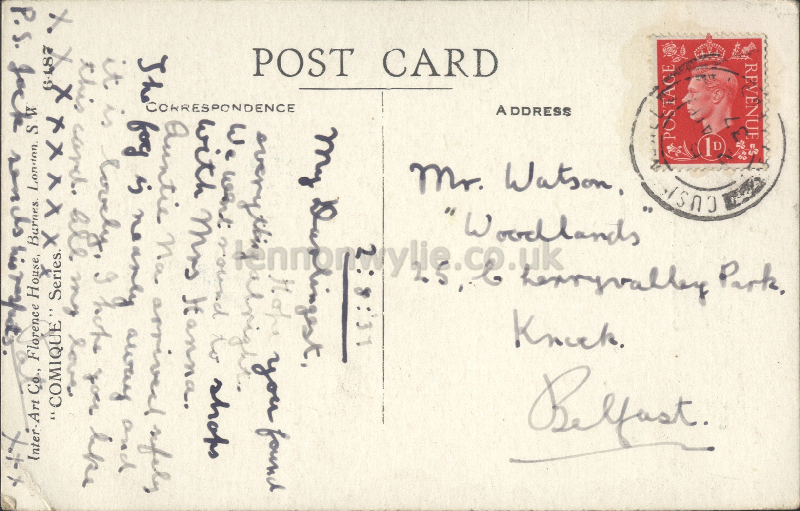 POST CARD
CORRESPONDENCE
ADDRESS
POSTAGE
REVENUE
1D
2:8:37
My Darlingest,
Hope you found
everything alright.
We went round to shops
with Mrs Hanna.
Auntie Na arrived safely
The fog is nearly away and
it is lovely. I hope you like
this card. All my love
x. x x x x x x x x
P.S. Jack sends
x++
Mr. Watson,
"Woodlands"
25, Cherryvalley Park,
Knock.
Belfast.
"COMIQUE" Series. 6487
Inter-Art Co., Florence House, Barnes, London, S.W.
lennonwylie.co.uk